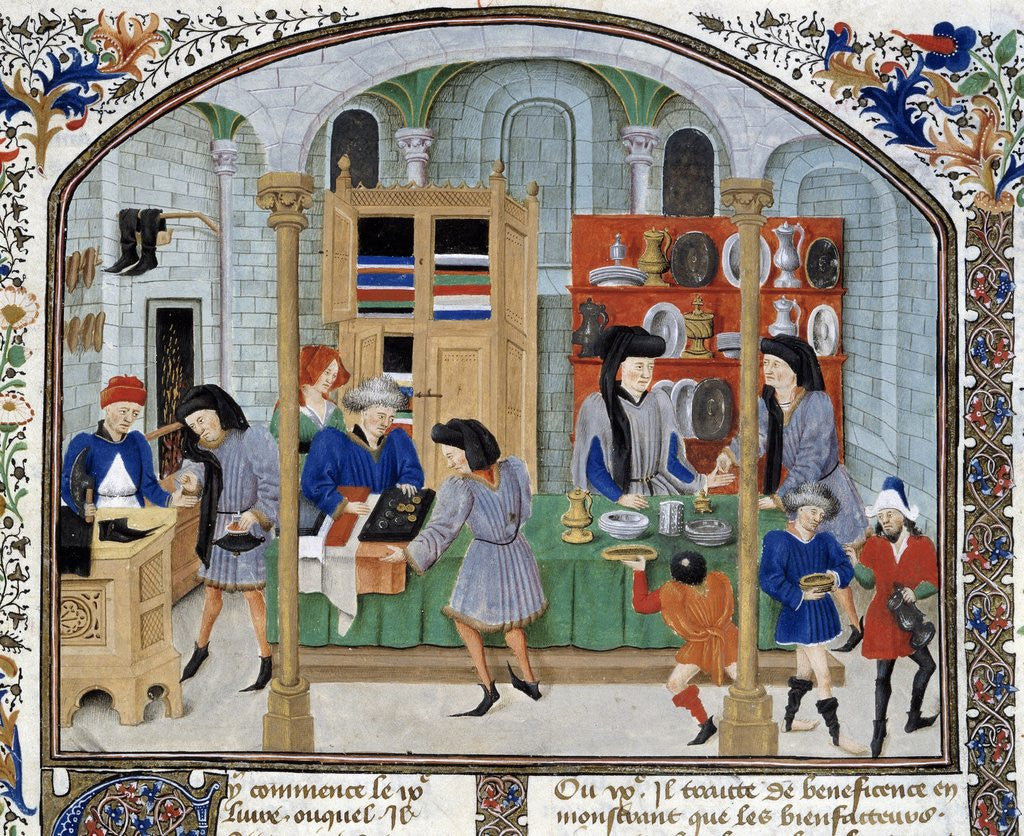 y commence le ixͤ
Liure, ouquel Il
Ou ixͤ. Il traitte De beneficence en
monstrant que les bienfacteurs.